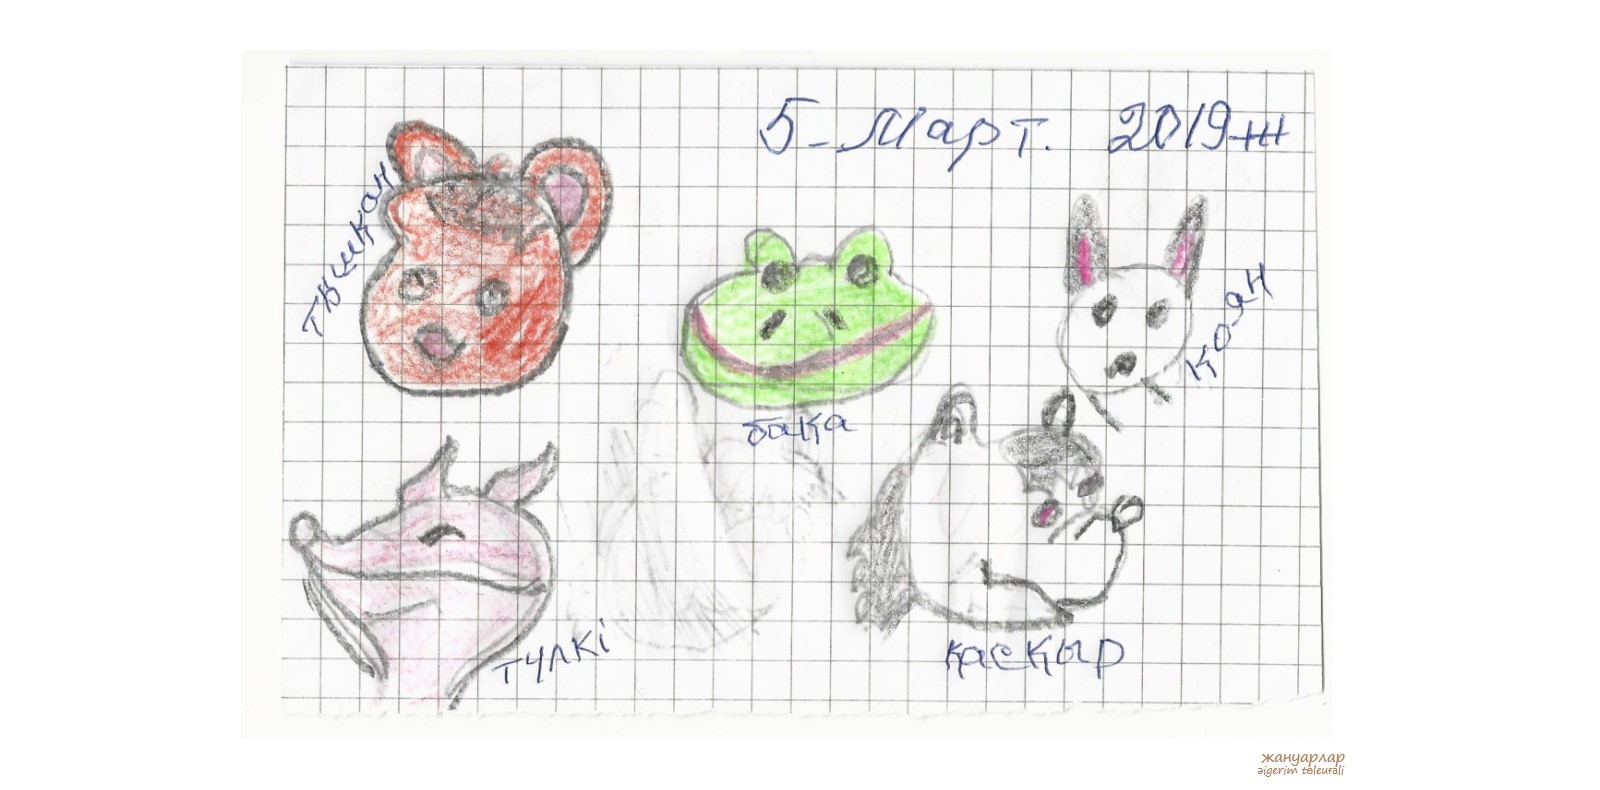 5-Март. 2019ж
тышқан
қоян
бақа
түлкі
қасқыр
жануарлар
әigerim tөleuғali